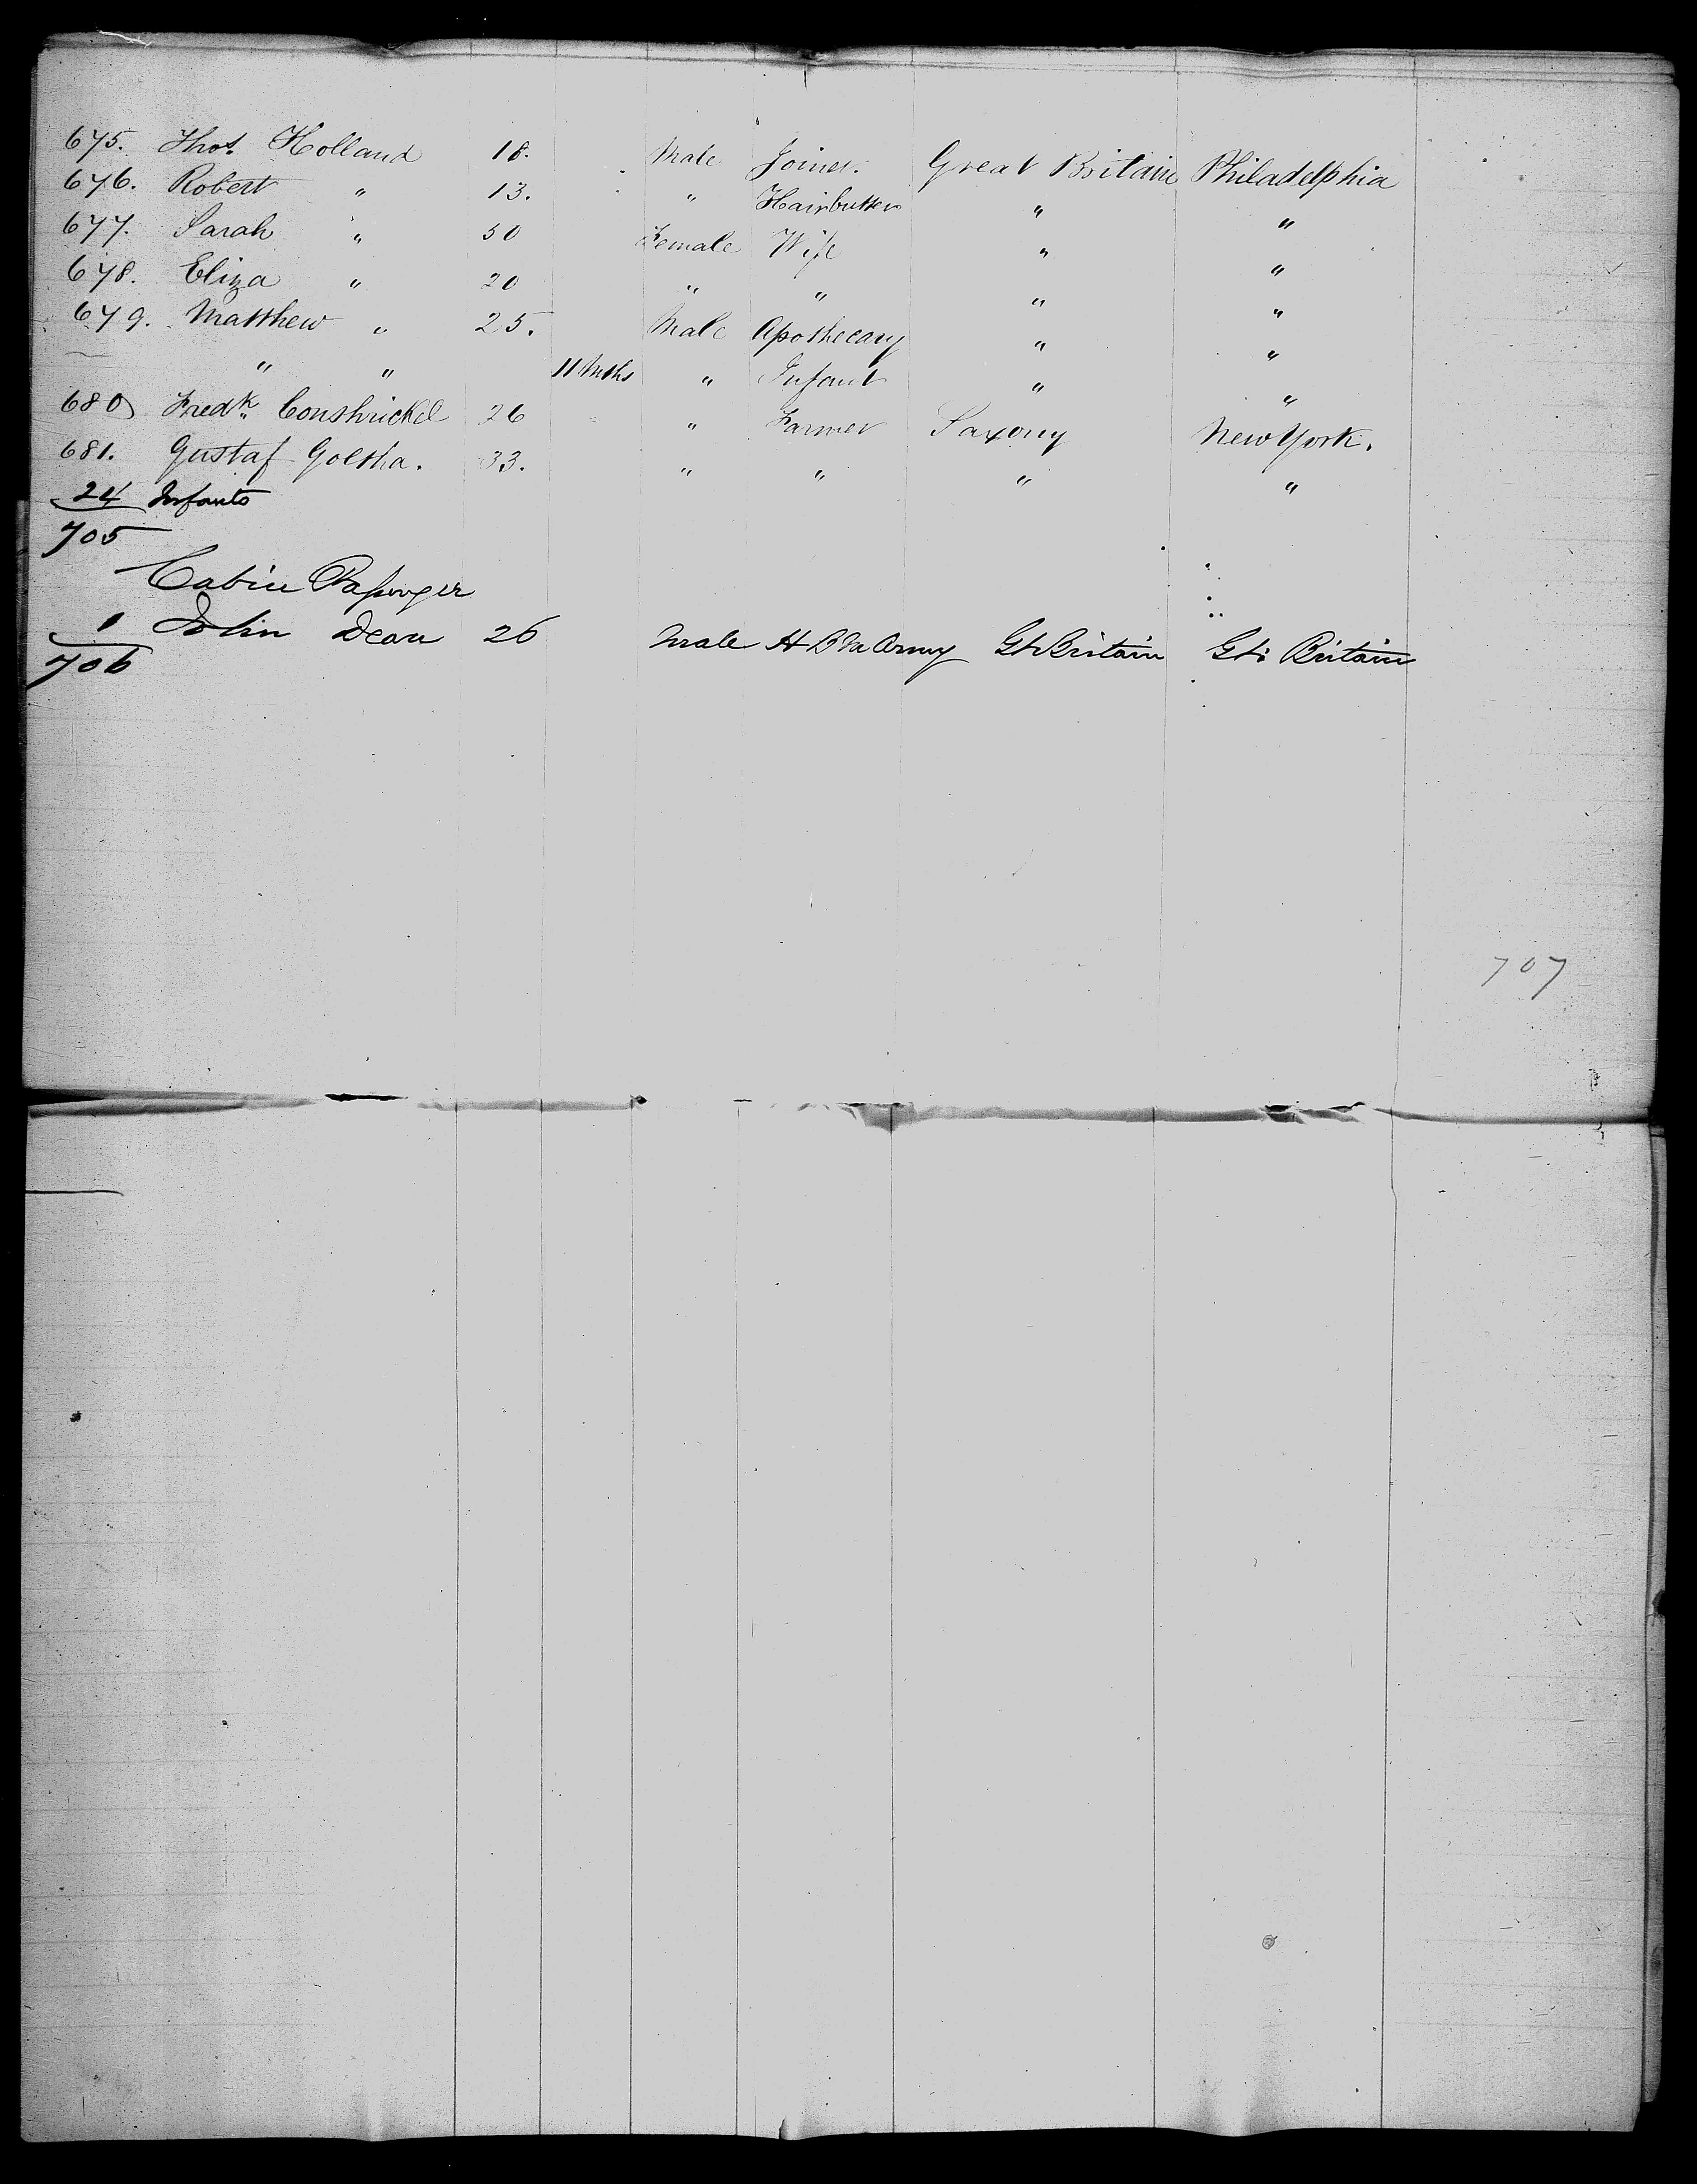 675. Thos. Holland 18. Male Joiner. Great Britain Philadelphia
676. Robert " 13. " Haircutter " "
677. Sarah " 50 Female Wife " "
678. Eliza " 20 " " " "
679. Matthew " 25. Male Apothecary " "
" " 11 Mths " Infant " "
680 Fredk. 26 " Farmer Saxony New York.
681. Gustaf Goltha. 33. " " " "
24 Infants
705
Cabin Passenger
1 John Dean 26 Male H B M Army Gt Britain Gt Britain
706
707